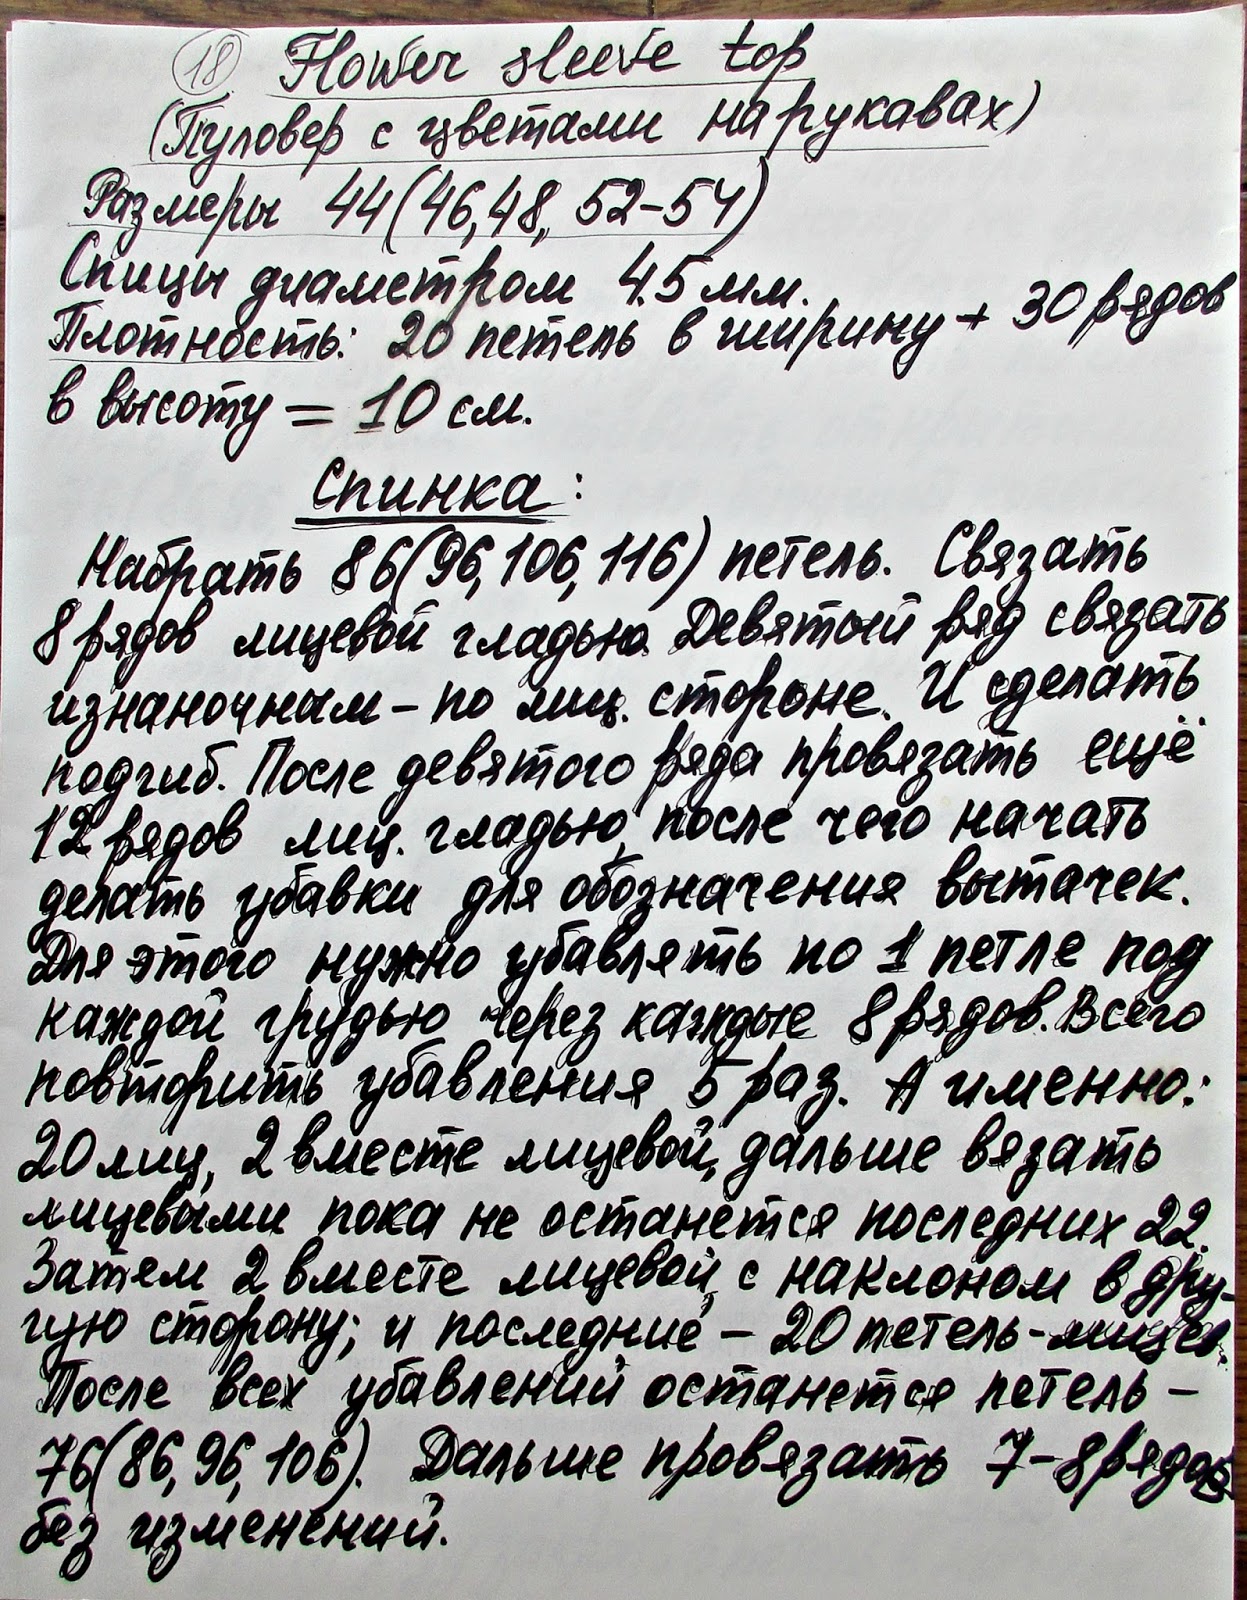 18 Flower sleeve top
(Пуловер с цветами на рукавах)
Размеры 44(46,48, 52-54)
Спицы диаметром 4.5 мм.
Плотность: 20 петель в ширину + 30 рядов
в высоту = 10 см.
Спинка:
Набрать 86(96,106,116) петель. Связать
8 рядов лицевой гладью. Девятый ряд связать
изнаночным - по лиц. стороне. И сделать
подгиб. После девятого ряда провязать ещё
12 рядов лиц. гладью, после чего начать
делать убавки для обозначения вытачек.
Для этого нужно убавлять по 1 петле под
каждой грудью через каждые 8 рядов. Всего
повторить убавления 5 раз. А именно:
20 лиц, 2 вместе лицевой, дальше вязать
лицевыми пока не останется последних 22.
Затем 2 вместе лицевой, с наклоном в дру-
гую сторону; и последние - 20 петель - лицев.
После всех убавлений останется петель -
76(86,96,106). Дальше провязать 7-8 рядов
без изменений.